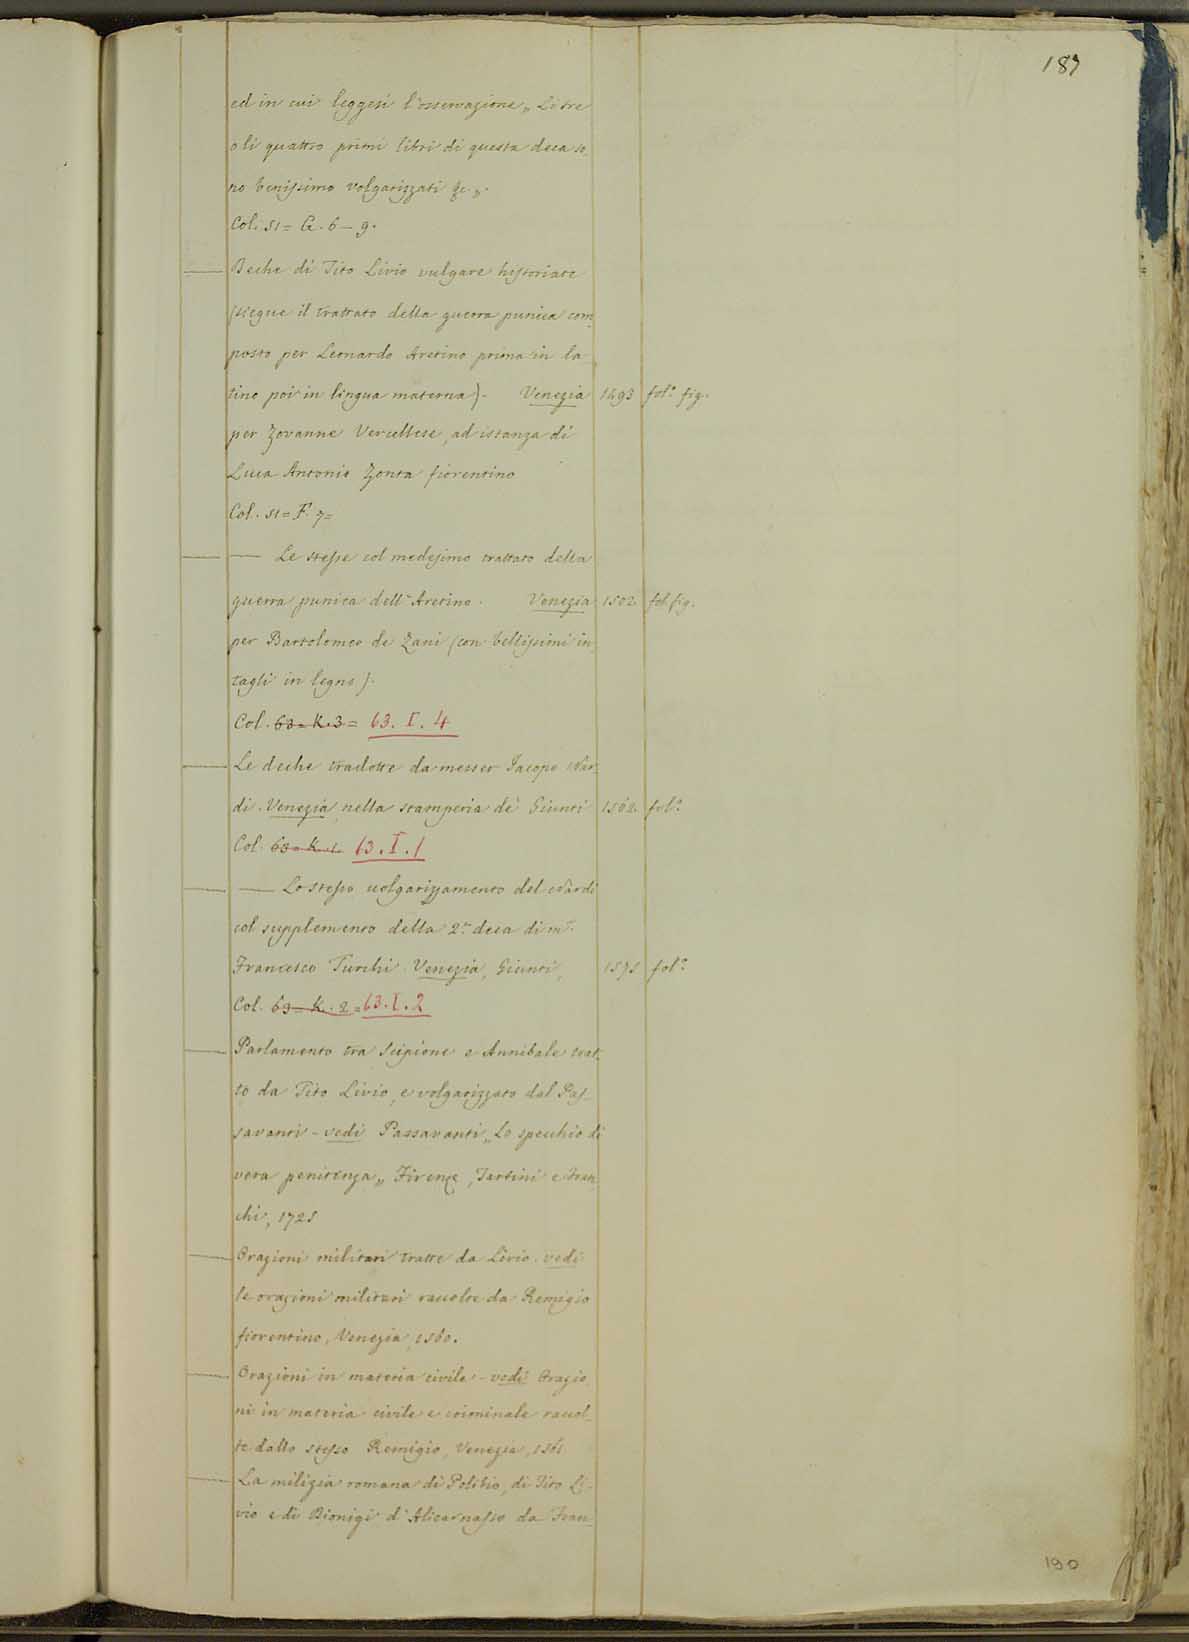 187
ed in cui leggesi l'osservazione „ Li tre
o li quattro primi libri di questa deca so_
no benissimo volgarizzati &c. „.
Col. 51 = G. 6 – 9.
— Deche di Tito Livio vulgare historiate
(siegue il trattato della guerra punica com_
posto per Leonardo Aretino prima in la_
tino poi in lingua materna). Venezia 1493 fol.° fig.
per Zovanne Vercellese, ad istanza di
Luca Antonio Zonta fiorentino
Col. 51 = F. 7 =
— — Le stesse col medesimo trattato della
guerra punica dell'Aretino. Venezia 1502 fol. fig.
per Bartolomeo de Zani (con bellissimi in_
tagli in legno).
Col. 63 = K. 3 = 63. I. 4
— Le deche tradotte da messer Jacopo Nar_
di. Venezia nella stamperia de' Giunti 1562 fol.°
Col. 63 = K. 1. 63. I. 1
— — Lo stesso volgarizzamento del Nardi
col supplemento della 2.ª deca di m.r
Francesco Turchi Venezia, Giunti, 1575 fol.°
Col. 63 = K. 2 = 63. I. 2
— Parlamento tra Scipione e Annibale trat_
to da Tito Livio, e volgarizzato dal Pas_
savanti – vedi Passavanti „ Lo specchio di
vera penitenza „ Firenze, Tartini e Fran_
chi, 1725
— Orazioni militari tratte da Livio. vedi
le orazioni militari raccolte da Remigio
fiorentino, Venezia, 1560.
— Orazioni in materia civile – vedi Orazio_
ni in materia civile e criminale raccol_
te dallo stesso Remigio, Venezia, 1561
— La milizia romana di Polibio, di Tito Li_
vio e di Dionigi d'Alicarnasso da Fran_
190